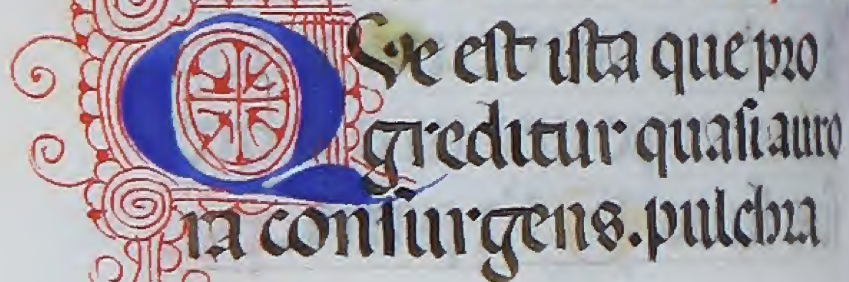 QVe est ista que pro
greditur quasi auro
ra consurgens. pulchra